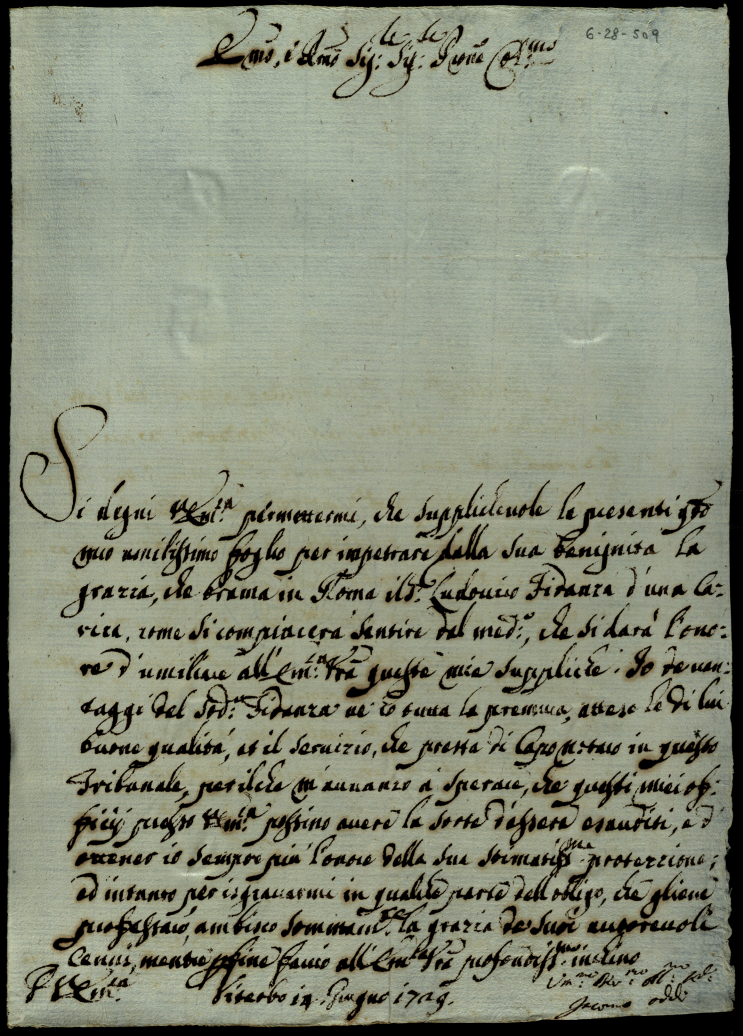 6-28-509
Emo, e Rmo Sig: Sig: Pron̄e Col:mo
Si degni V. Em:za permettermi, che supplichevole le presenti q̄sto
mio umilissimo foglio per impetrare dalla sua benignità la
grazia, che brama in Roma il S.r Ludovico Fidanza d'una Ca-
rica, come si compiacerà sentire dal med:o, che si darà l'ono-
re d'umiliare all'Em:za V̄ra queste mie suppliche. Io de van-
taggi del Sud:o Fidanza ne ho tutta la premura, attese le di lui
buone qualità, et il servizio, che presta di Capo notaro in questo
Tribunale, perilche m'avvanzo à sperare, che questi miei of-
ficij presso V. Em:za possino avere la sorte d'essere esauditi, e d'
ottener io sempre più l'onore della sua stimatiss:ma protezzione;
ed intanto per isgravarmi in qualche parte dell'obligo, che gliene
professarò, ambisco sommam:te la grazia de suoi autorevoli
cenni, mentre per fine faccio all'Em:za V̄ra profondiss:mo inchino
D V. Em:za Viterbo 14 Giugno 1729.
Um:mo Dev:mo Obl:mo
Jacomo Oddi